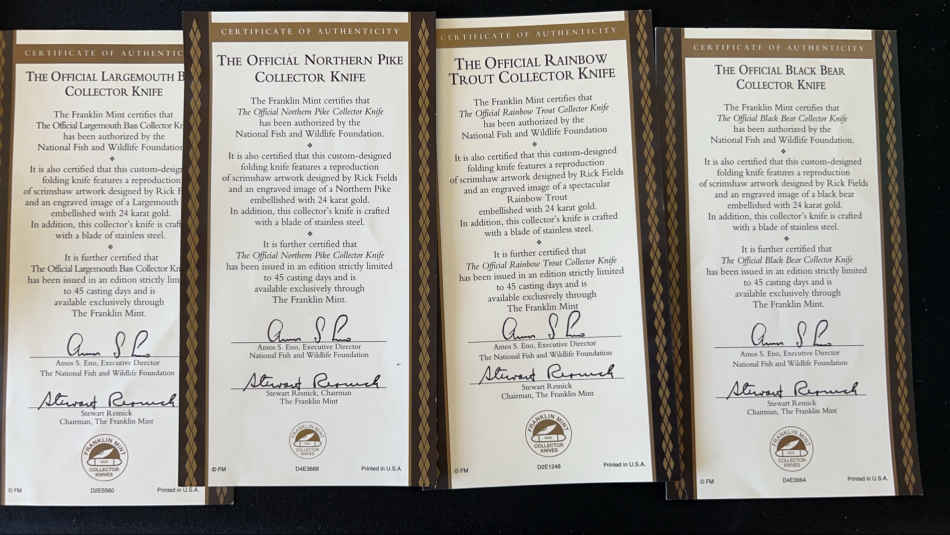 CERTIFICATE OF AUTHENTIC
THE OFFICIAL LARGEMOUTH B
COLLECTOR KNIFE
The Franklin Mint certifies that
The Official Largemouth Bass Collector Kn
has been authorized by the
National Fish and Wildlife Foundation
It is also certified that this custom-desig
folding knife features a reproduction
of scrimshaw artwork designed by Rick F
and an engraved image of a Largemouth
embellished with 24 karat gold.
In addition, this collector's knife is craf
with a blade of stainless steel.
It is further certified that
The Official Largemouth Bass Collector Kn
has been issued in an edition strictly lim
to 45 casting days and is
available exclusively through
The Franklin Mint.
Amos S. Eno, Executive Director
The National Fish and Wildlife Foundation
Stewart Resnick
Stewart Resnick
Chairman, The Franklin Mint
FRANKLIN MINT
COLLECTOR
KNIVES
© FM
Printed in U.S.A.
CERTIFICATE OF AUTHENTICITY
THE OFFICIAL NORTHERN PIKE
COLLECTOR KNIFE
The Franklin Mint certifies that
The Official Northern Pike Collector Knife
has been authorized by the
National Fish and Wildlife Foundation.
It is also certified that this custom-designed
folding knife features a reproduction
of scrimshaw artwork designed by Rick Fields
and an engraved image of a Northern Pike
embellished with 24 karat gold.
In addition, this collector's knife is crafted
with a blade of stainless steel.
It is further certified that
The Official Northern Pike Collector Knife
has been issued in an edition strictly limited
to 45 casting days and is
available exclusively through
The Franklin Mint.
Amos S. Eno, Executive Director
National Fish and Wildlife Foundation
Stewart Resnick
Stewart Resnick, Chairman
The Franklin Mint
FRANKLIN MINT
COLLECTOR
KNIVES
© FM
Printed in U.S.A.
CERTIFICATE OF AUTHENTICITY
THE OFFICIAL RAINBOW
TROUT COLLECTOR KNIFE
The Franklin Mint certifies that
The Official Rainbow Trout Collector Knife
has been authorized by the
National Fish and Wildlife Foundation
It is also certified that this custom-designed
folding knife features a reproduction
of scrimshaw artwork designed by Rick Fields
and an engraved image of a spectacular
Rainbow Trout
embellished with 24 karat gold.
In addition, this collector's knife is crafted
with a blade of stainless steel.
It is further certified that
The Official Rainbow Trout Collector Knife
has been issued in an edition strictly limited
to 45 casting days and is
available exclusively through
The Franklin Mint
Amos S. Eno, Executive Director
The National Fish and Wildlife Foundation
Stewart Resnick
Stewart Resnick
Chairman, The Franklin Mint
FRANKLIN MINT
COLLECTOR
KNIVES
© FM
D2E1248
Printed in U.S.A.
CERTIFICATE OF AUTHENTICITY
THE OFFICIAL BLACK BEAR
COLLECTOR KNIFE
The Franklin Mint certifies that
The Official Black Bear Collector Knife
has been authorized by the
National Fish and Wildlife Foundation.
It is also certified that this custom-designed
folding knife features a reproduction
of scrimshaw artwork designed by Rick Fields
and an engraved image of a black bear
embellished with 24 karat gold.
In addition, this collector's knife is crafted
with a blade of stainless steel.
It is further certified that
The Official Black Bear Collector Knife
has been issued in an edition strictly limited
to 45 casting days and is
available exclusively through
The Franklin Mint.
Amos S. Eno, Executive Director
The National Fish and Wildlife Foundation
Stewart Resnick
Stewart Resnick
Chairman, The Franklin Mint
FRANKLIN MINT
COLLECTOR
KNIVES
© FM
Printed in U.S.A.